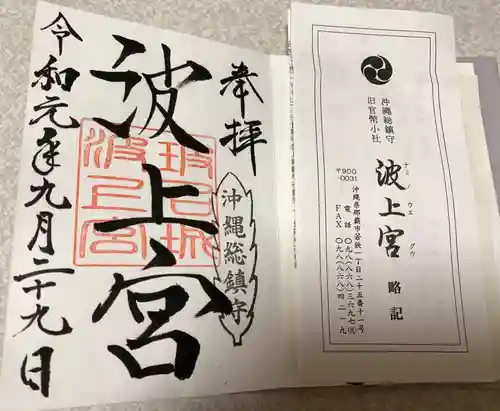 奉拝
沖縄総鎮守
波上宮
令和元年九月二十九日
沖縄総鎮守
旧官幣小社
波上宮 略記
ナミノウエグウ
〒900-0031
沖縄県那覇市若狭一丁目二十五番十一号
電話 〇九八(八六八)三六九七(代)
FAX 〇九八(八六八)四二一九